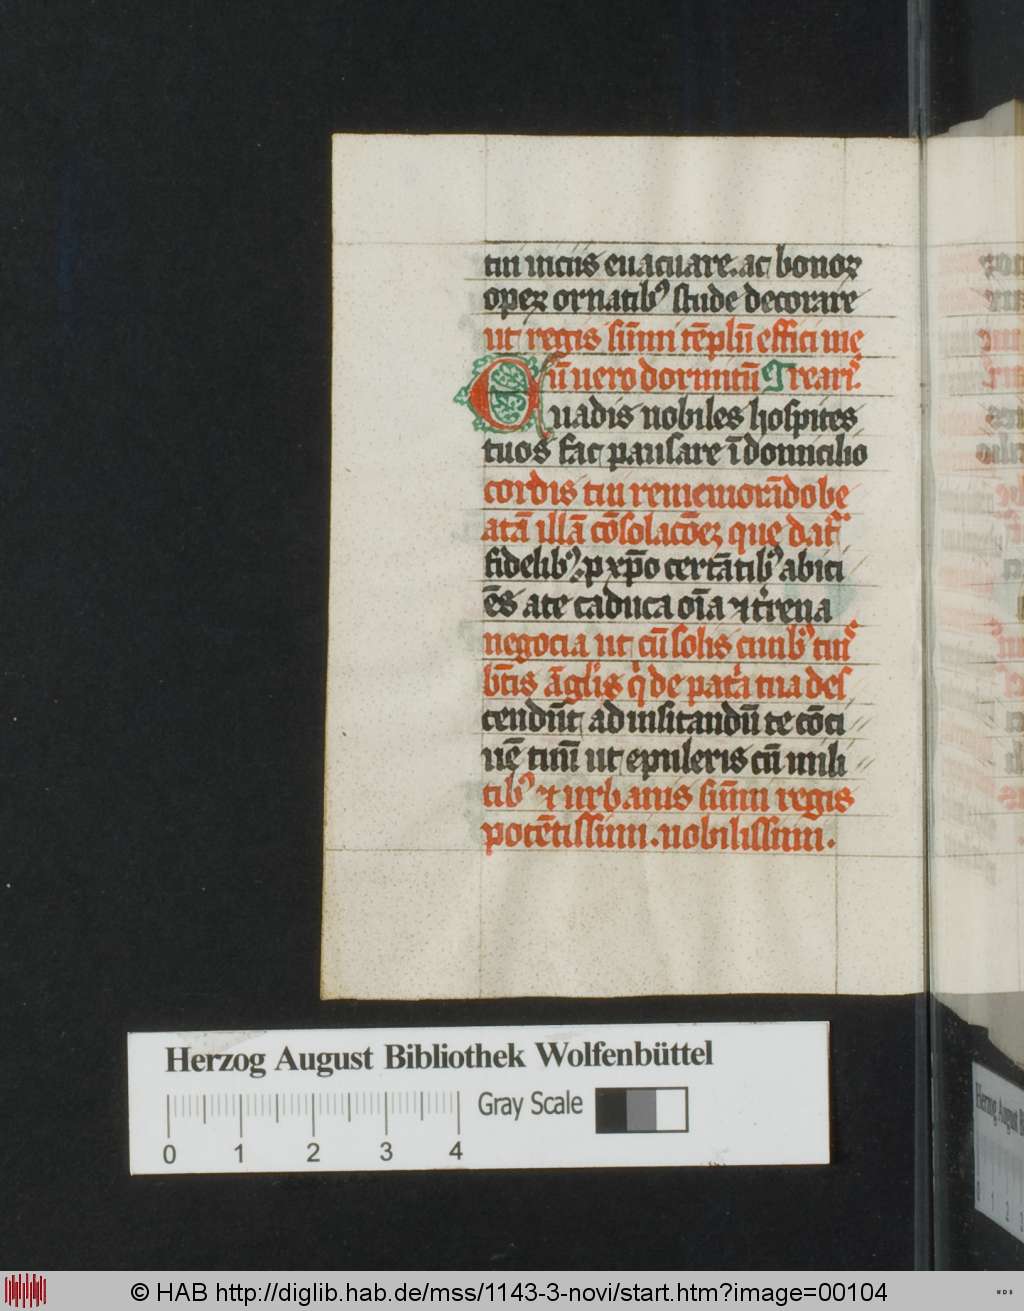 tui uiciis euacuare. ac bonoꝝ
opeꝝ ornatib⁹ stude decorare
ut regis sūmi tēplū effici me
ū uero dormitū Trearꝭ.
Quadis nobiles hospites
tuos fac pausare ī domicilio
cordis tui rememorādo be
atā illā cōsolacōeꝫ que dat᷑
fidelib⁹. ꝑ xp̄o certātib⁹ abici
ēs a te caduca oīa ⁊ t͛rena
negocia ut cū solis ciuib⁹ tuis
bt̄is āgl̓is q̇ de pat͛a tua des
cendūt ad uisitandū te cōci
uē tuū ut epuleris cū mili
tib⁹ ⁊ urbanis sūmi regis
potētissimi. nobilissimi.
Herzog August Bibliothek Wolfenbüttel
Gray Scale
0 1 2 3 4
© HAB http://diglib.hab.de/mss/1143-3-novi/start.htm?image=00104